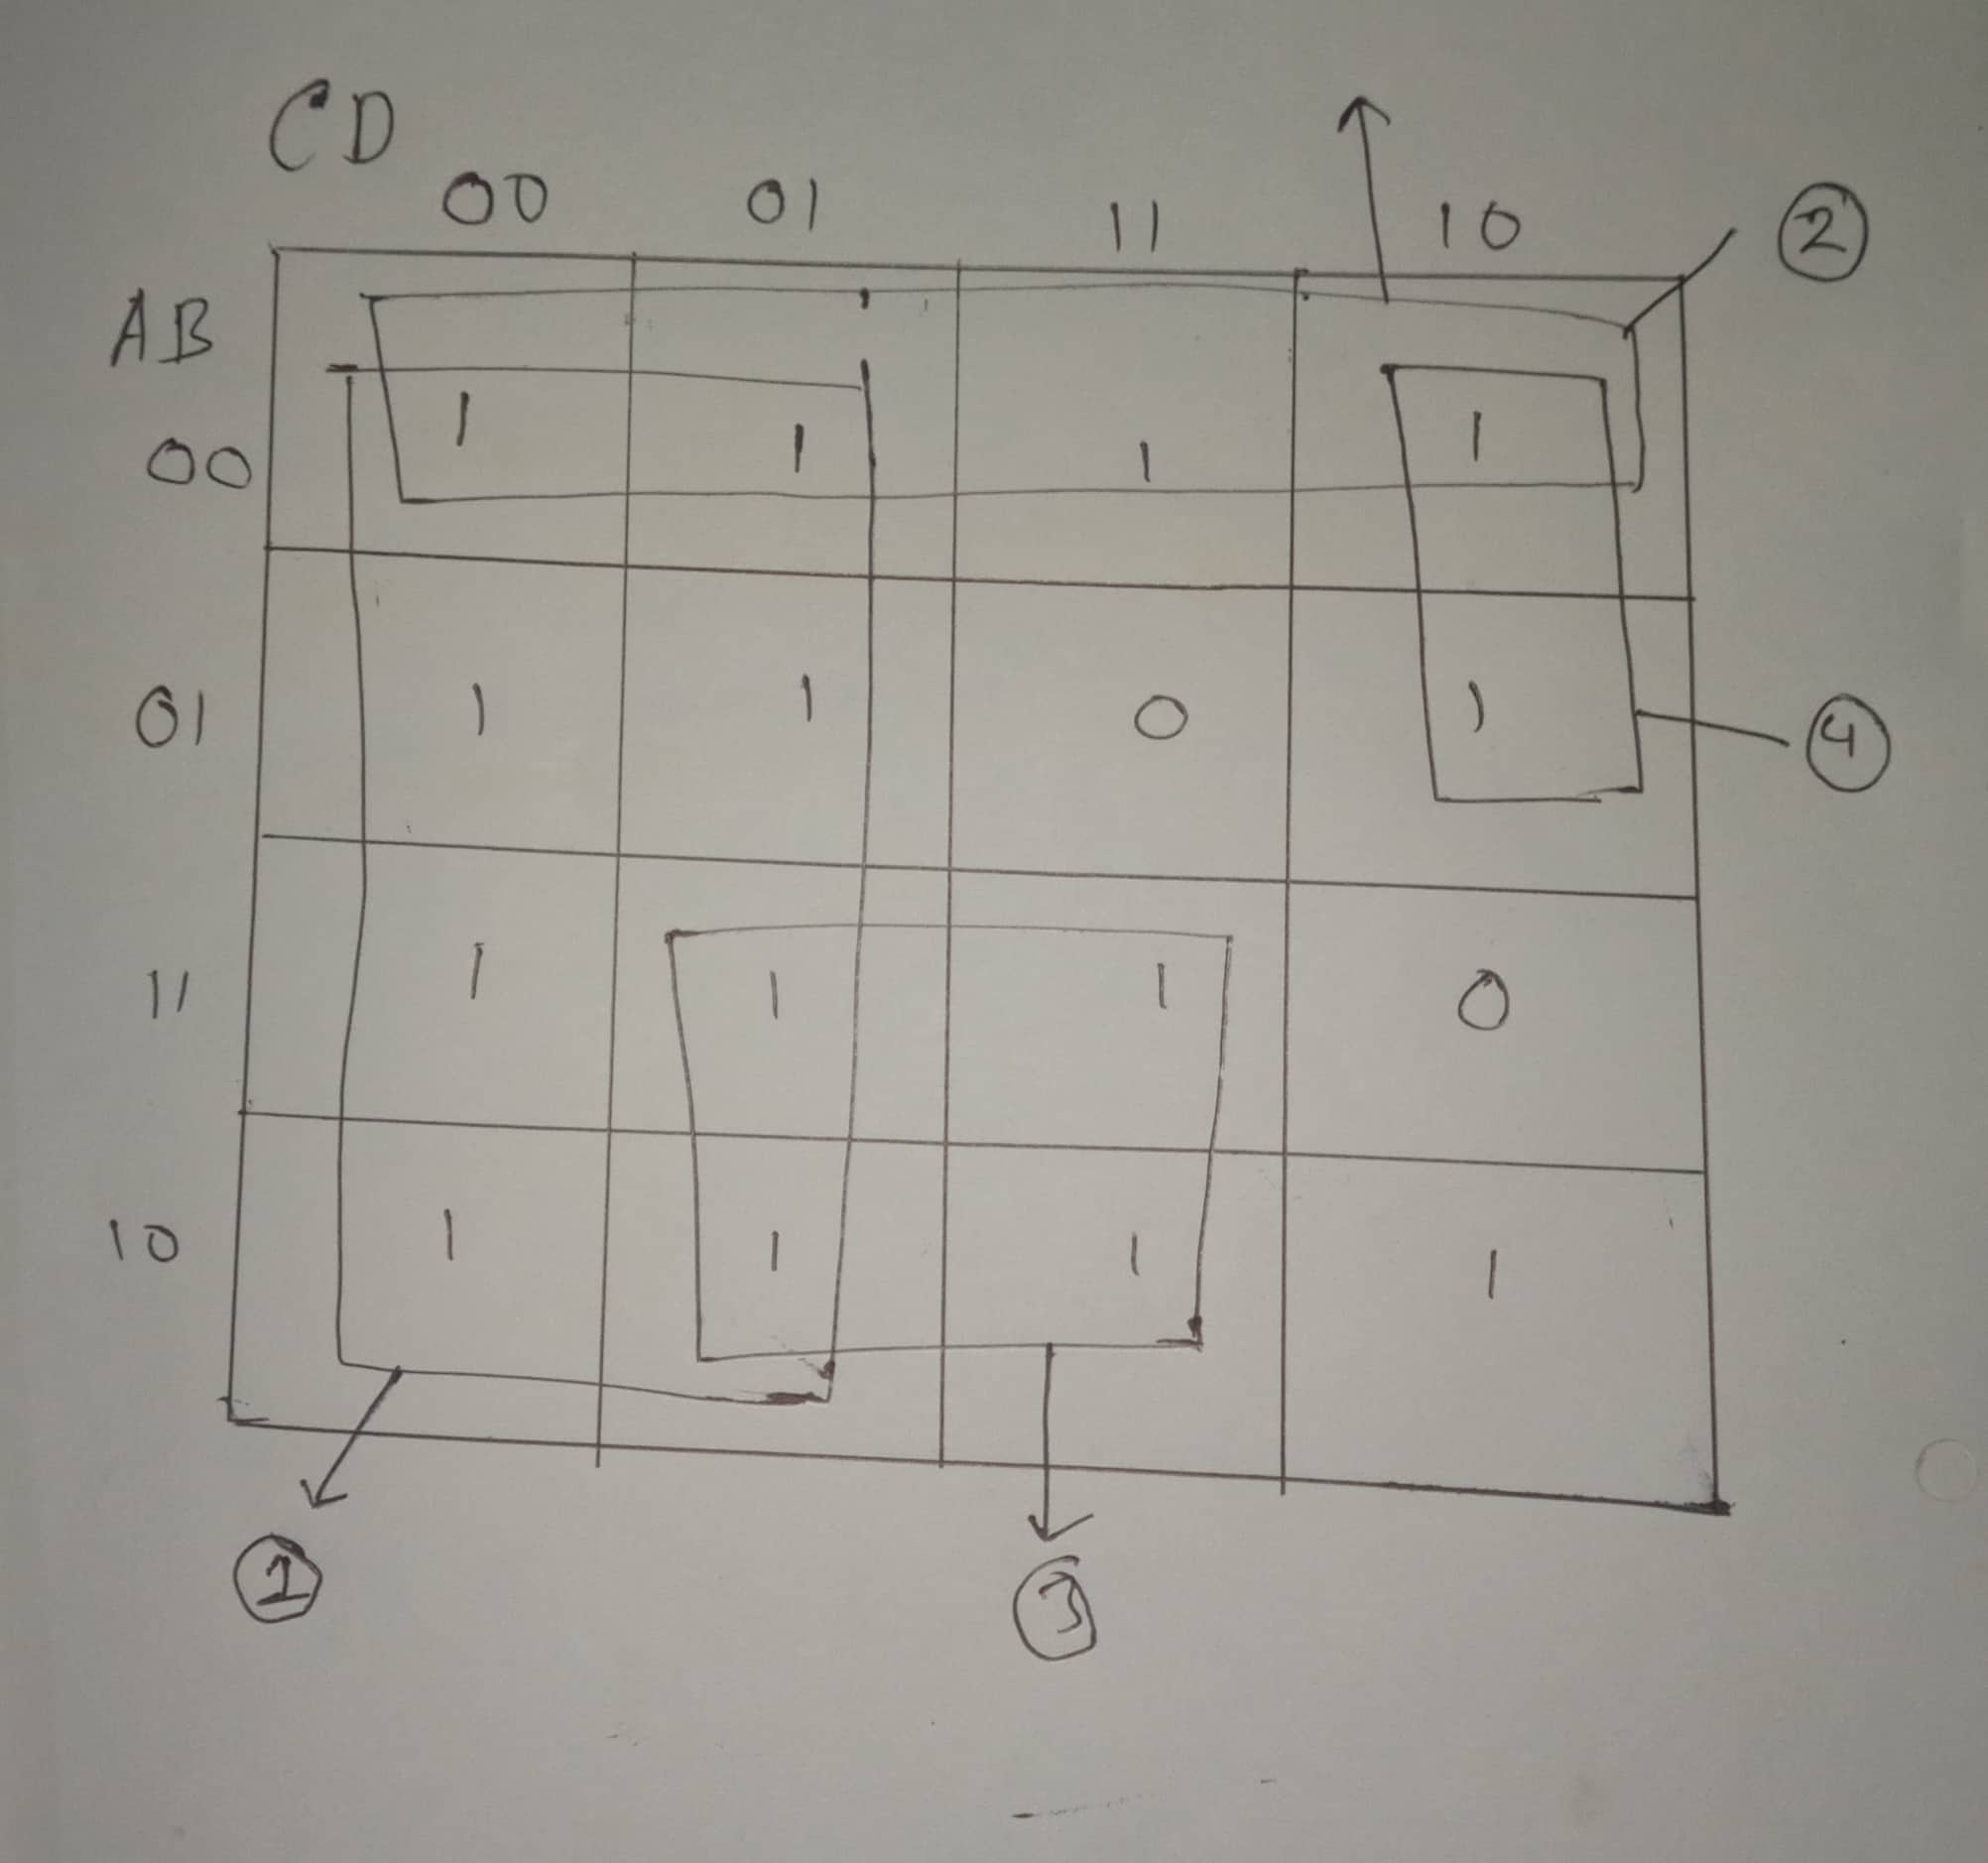 CD
00 01 11 10 ②
AB
00 1 1 1 1
01 1 1 0 1 ④
11 1 1 1 0
10 1 1 1 1
① ③